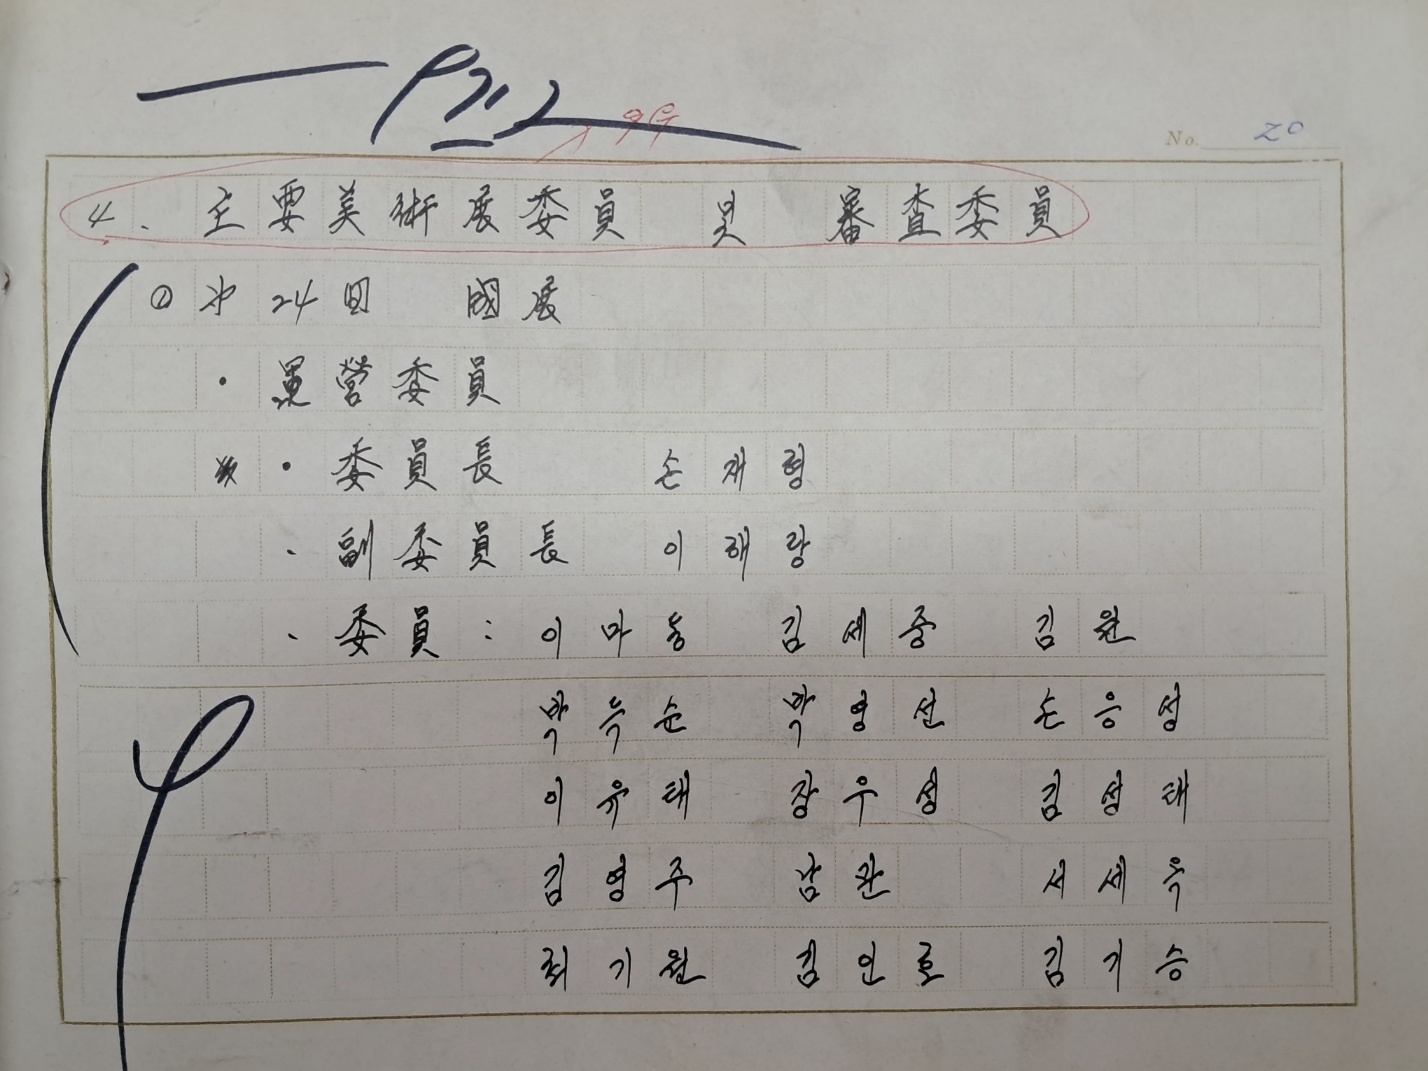 No. 20
4. 主要美術展委員 및 審査委員
① 第24回 國展
· 運營委員
· 委員長 손재형
· 副委員長 이해랑
· 委員 : 이마동 김세중 김원
박득순 박영선 손응성
이유태 장우성 김성태
김영주 남관 서세옥
최기원 김인로 김기승